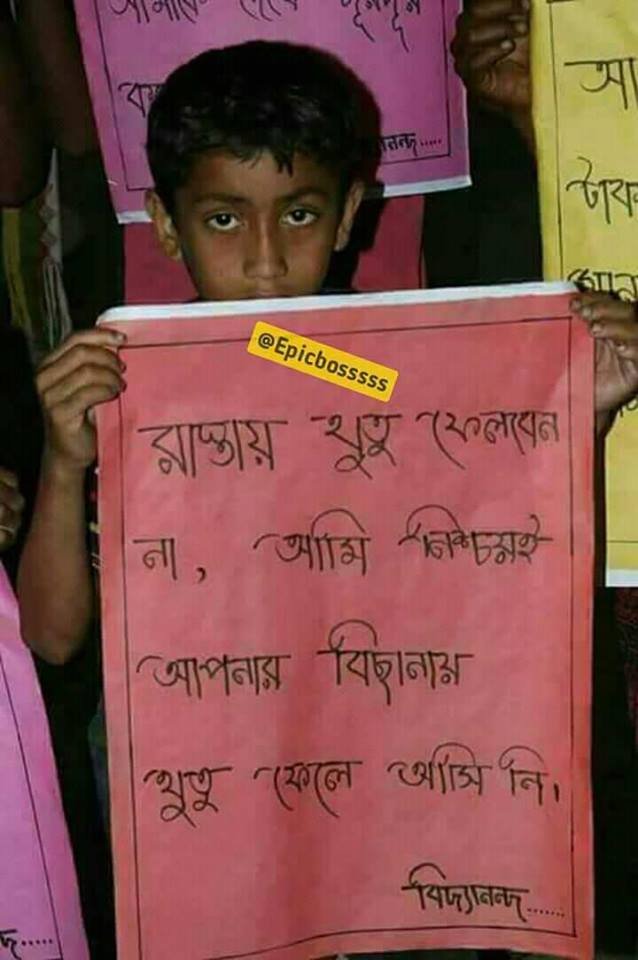 আমাকে দেখে দূরদূর
@Epicbosssss
রাস্তায় থুতু ফেলবেন
না, আমি নিশ্চয়ই
আপনার বিছানায়
থুতু ফেলে আসি নি।
বিদ্যানন্দ......